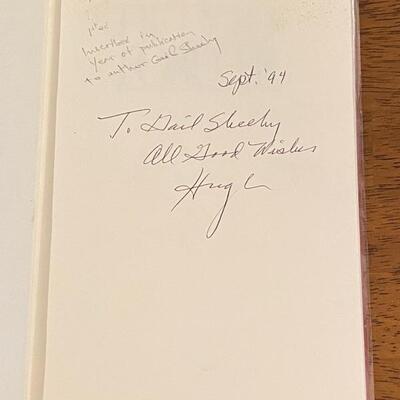 1st ed
Inscribed in
Year of publication
to author Gail Sheehy
Sept. '94
To Gail Sheehy
All Good Wishes
Hugh